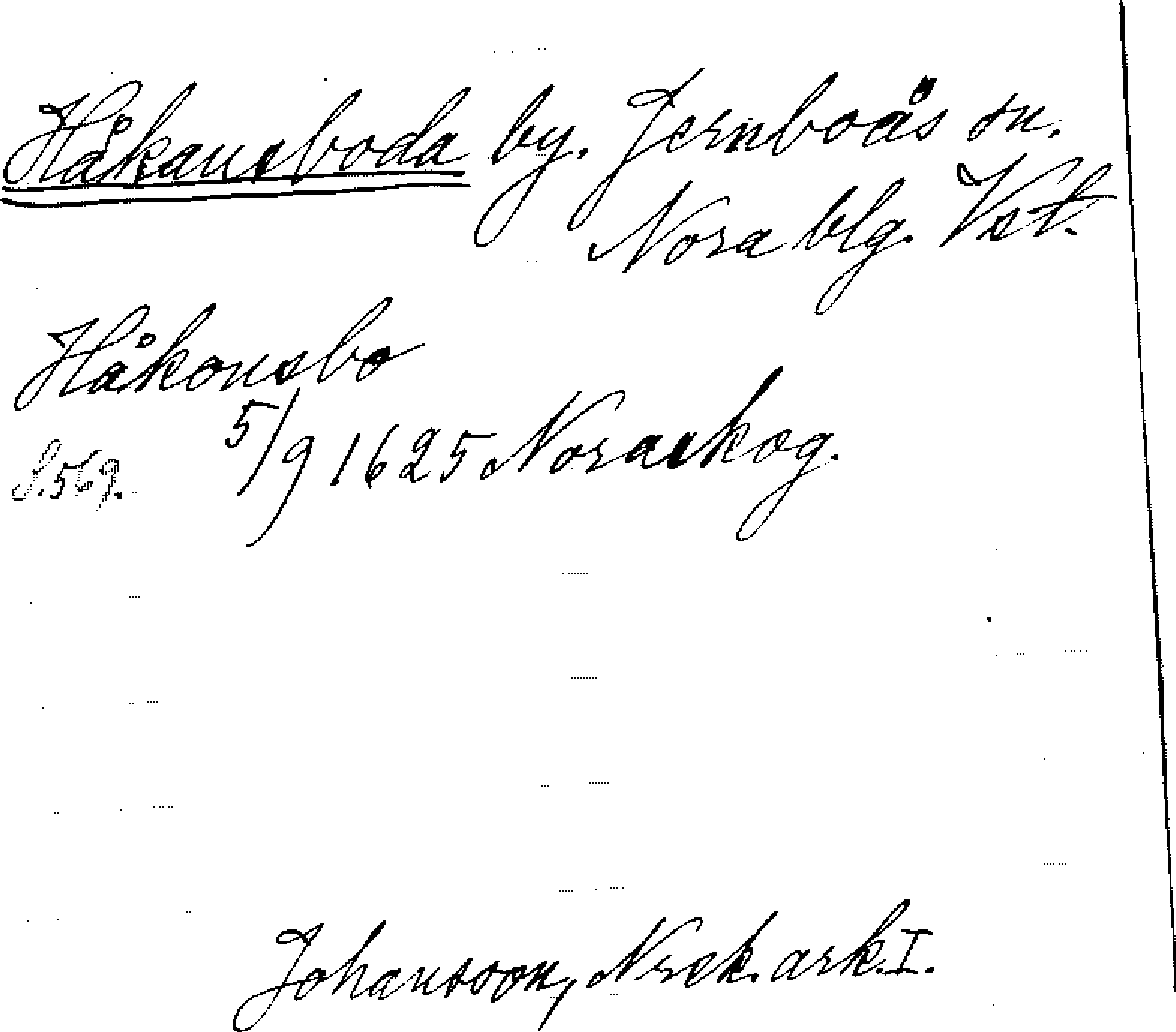 Håkansboda by. Jernboås sn.
Nora blg. Vst.
Håkonsbo
5/9 1625 Noraskog.
S. 569.
Johansson, Nrsk. ark. I.